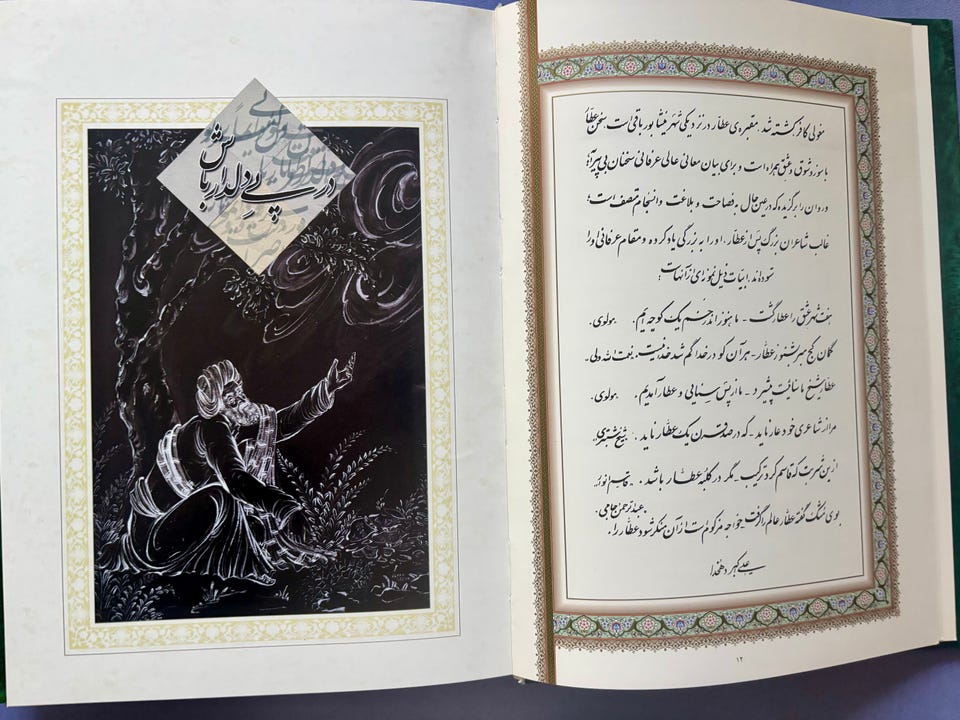 در پی دلدار باش
مغولی کافر کشته شد. مقبره‌ی عطار در نزدیکی شهر نیشابور باقی است. سخن عطار
با سوز و شوق و عشق همراه است و برای بیان معانی عالی عرفانی سخنان بی‌پیرایه
و روان را برگزیده که در عین حال به فصاحت و بلاغت و انسجام متصف است؛
غالب شاعران بزرگ پس از عطار، او را به بزرگی یاد کرده و مقام عرفانی او را
ستوده‌اند. ابیات ذیل نمونه‌ای از آنهاست
هفت شهر عشق را عطار گشت - ما هنوز اندر خم یک کوچه‌ایم. مولوی.
گمان کج مبر بشنو ز عطار - هر آن کو در خدا گم شد خدا نیست. نعمت الله ولی.
عطار شیخ ما سنائیت پیشرو - ما از پس سنایی و عطار آمدیم. مولوی.
مرا از شاعری خود عار ناید - که در صد قرن یک عطار ناید. شیخ شبستری
از این شربت که قاسم کرد ترکیب - مگر در کلبه عطار باشد. قاسم انوار.
بوی مشک گفته عطار عالم را گرفت خواجه مزکوم است از آن منکر شود عطار را. عبدالرحمن جامی
علی اکبر دهخدا
۱۲